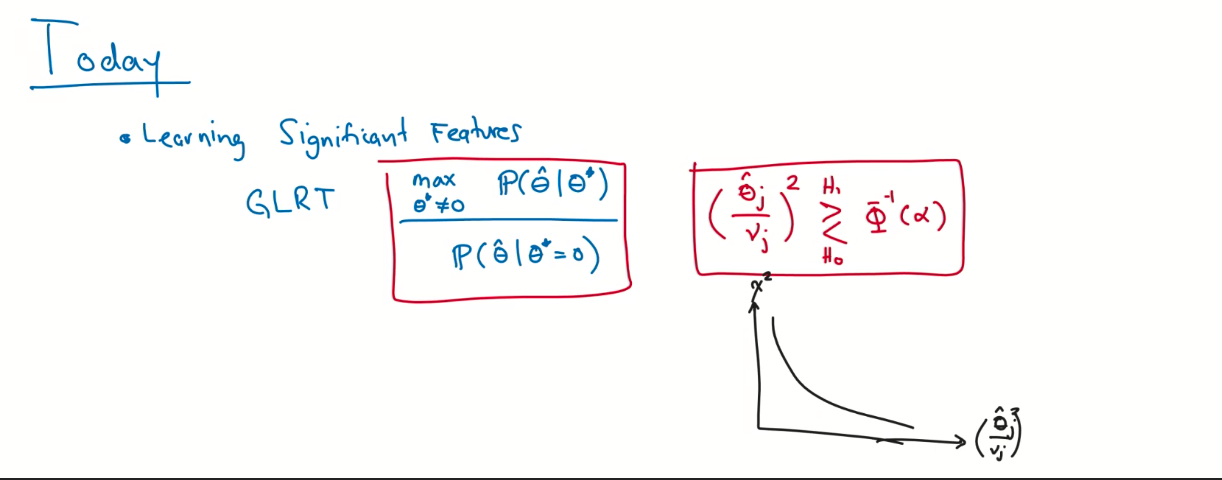 Today
• Learning Significant Features
GLRT
max θ*≠0 ℙ(θ̂|θ*)
ℙ(θ̂|θ*=0)
(θ̂j/νj)² H₁ ≷ H₀ Φ̄⁻¹(α)
χ²
(θ̂j/νj)²